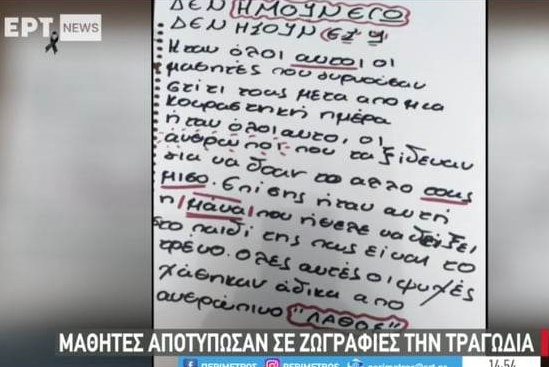 ΔΕΝ ΗΜΟΥΝ ΕΓΩ
ΕΡΤ NEWS
ΔΕΝ ΗΣΟΥΝ ΕΣΥ
Ήταν όλοι αυτοι οι
μαθητές που γυρνούσαν
σπίτι τους μετά απο μια
κουραστική ημέρα
ήταν όλοι αυτοι, οι
άνθρωποι που ταξίδευαν
για να δουν το άλλο τους
μισό. Επίσης ήταν αυτή
η μάνα που ήθελε να δείξει
στο παιδί της πως είναι το
τρένο. Όλες αυτές οι ψυχές
χάθηκαν άδικα απο
ανθρώπινο "ΛΑΘΟΣ"
ΜΑΘΗΤΕΣ ΑΠΟΤΥΠΩΣΑΝ ΣΕ ΖΩΓΡΑΦΙΕΣ ΤΗΝ ΤΡΑΓΩΔΙΑ
PERIMETROS PERIMETROS perimetros@ert.gr 14:54